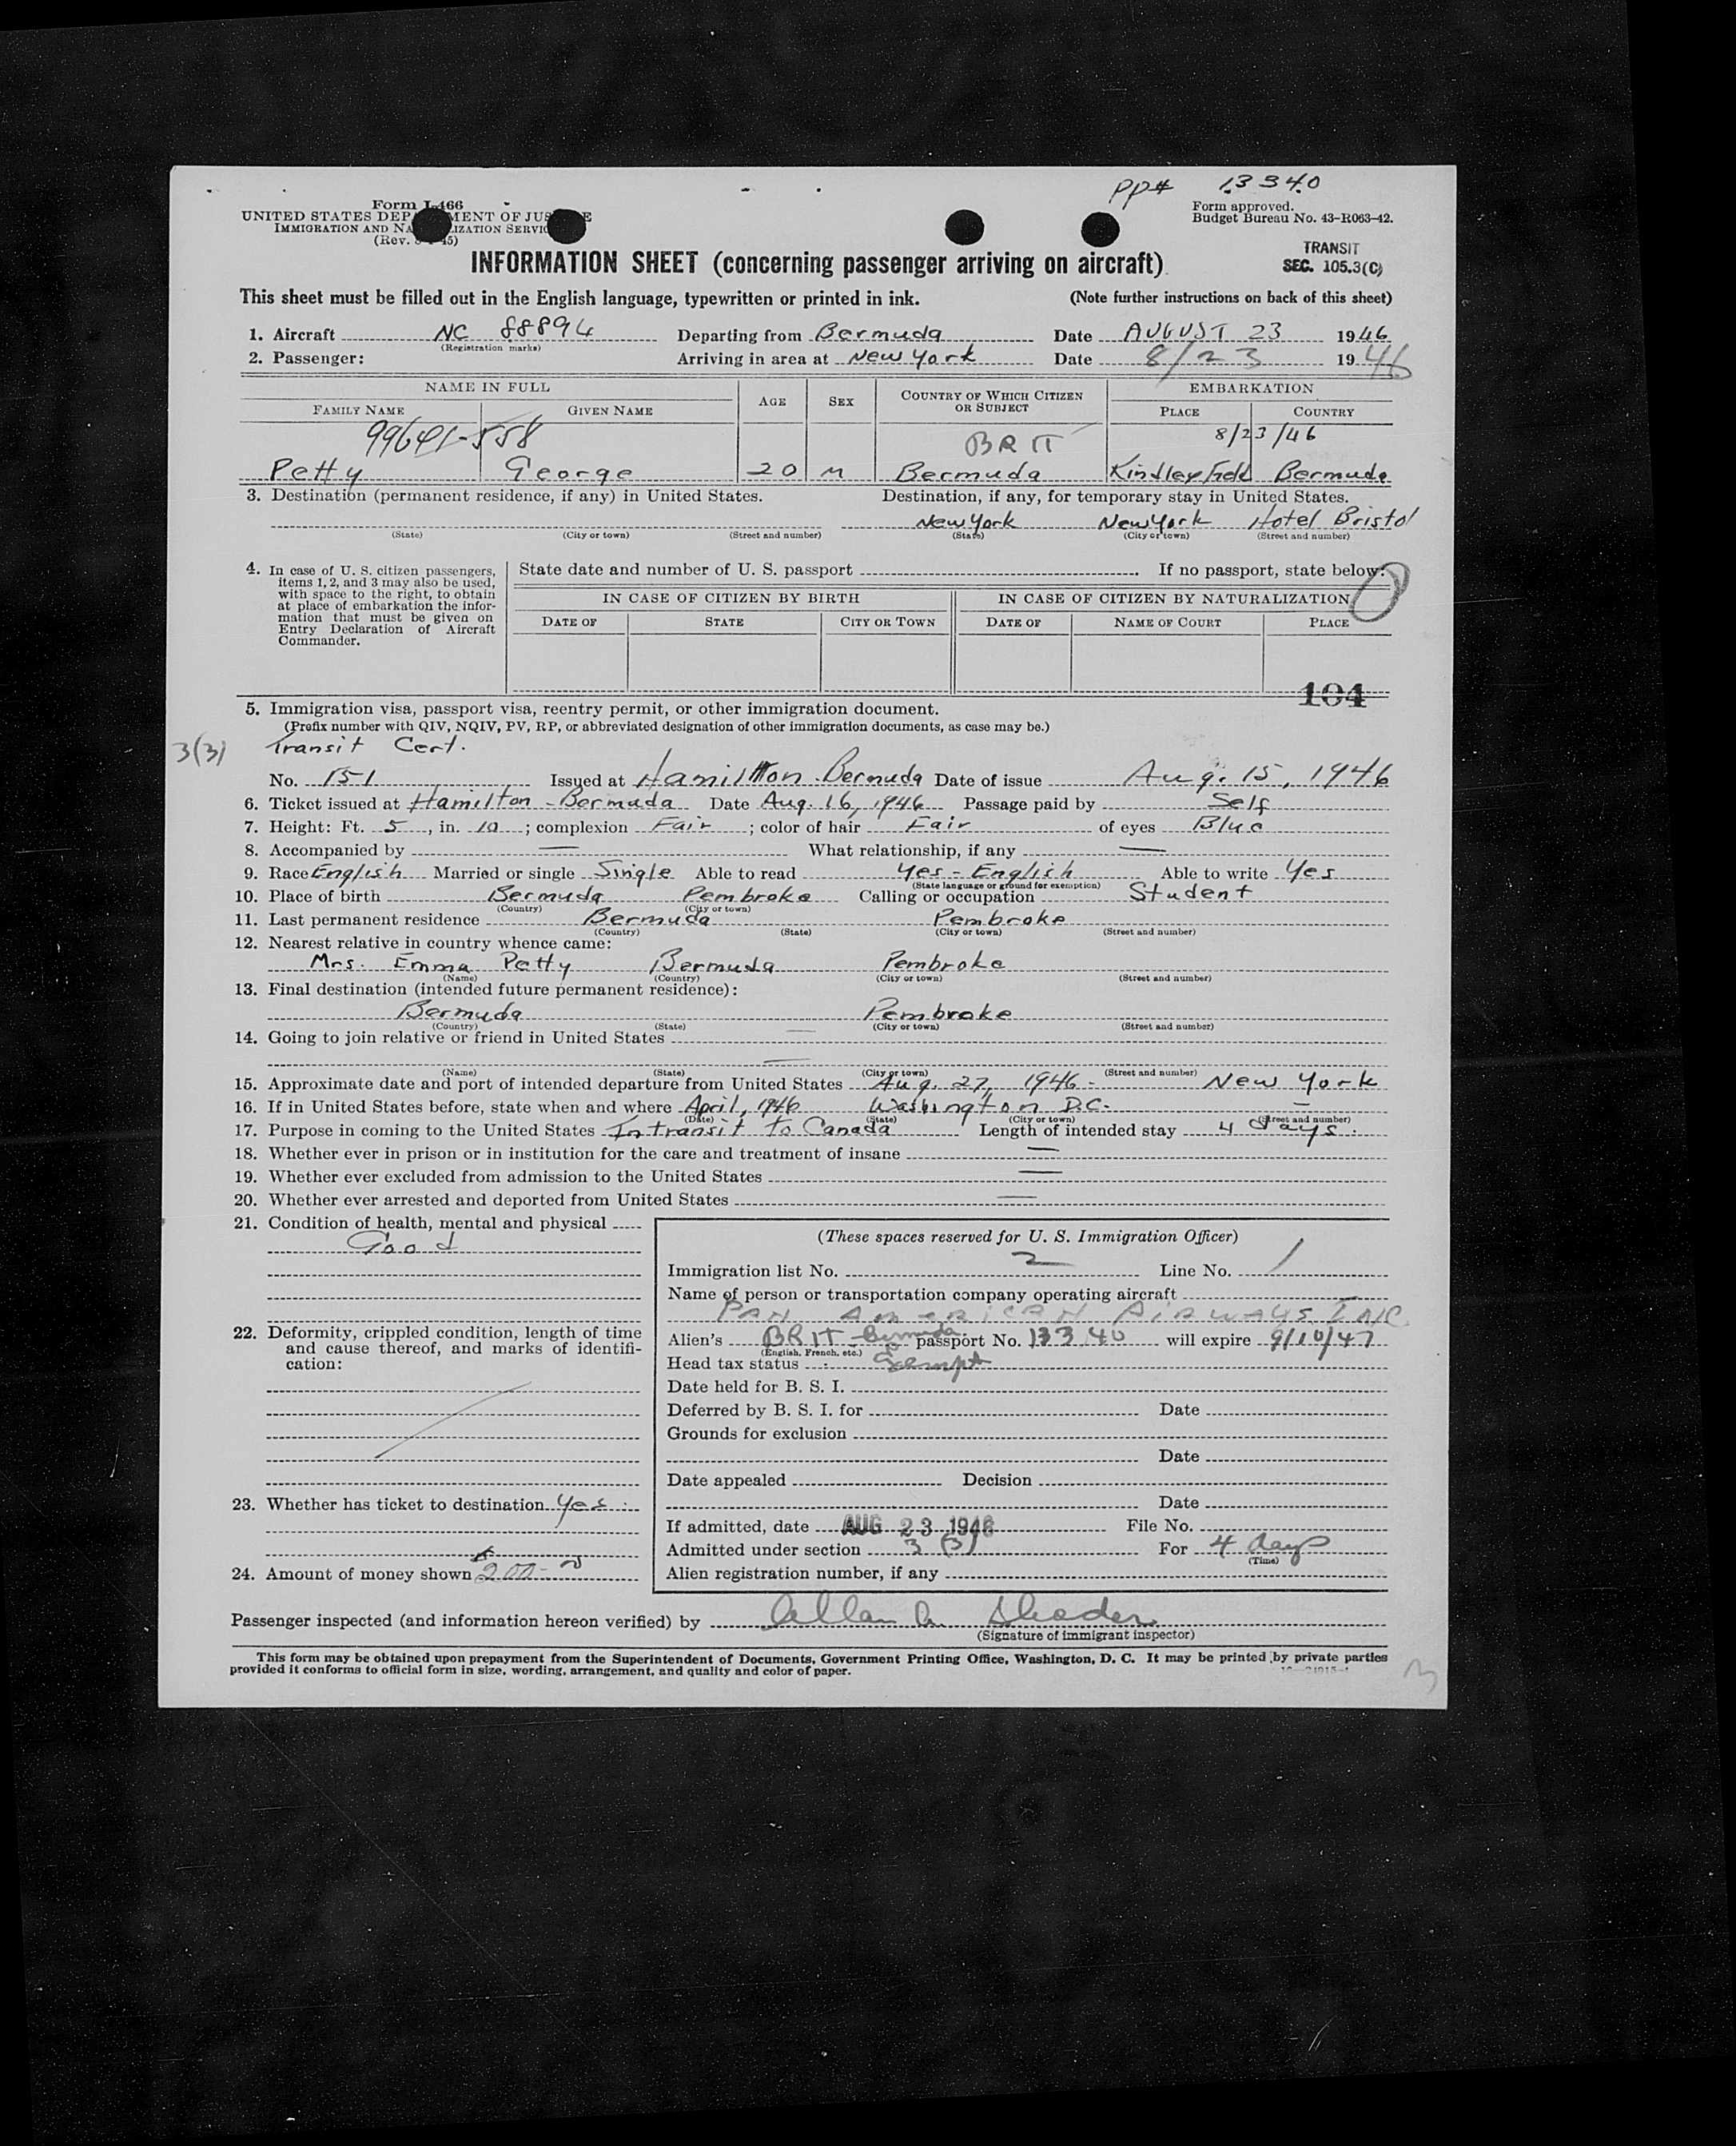 PP# 13340
Form I-466
UNITED STATES DEPARTMENT OF JUSTICE
IMMIGRATION AND NATURALIZATION SERVICE
(Rev. 45)
Form approved.
Budget Bureau No. 43-R063-42.
TRANSIT
SEC. 105.3(C)
INFORMATION SHEET (concerning passenger arriving on aircraft)
This sheet must be filled out in the English language, typewritten or printed in ink. (Note further instructions on back of this sheet)
1. Aircraft NC 88894 Departing from Bermuda Date AUGUST 23 1946
(Registration marks)
2. Passenger: Arriving in area at New York Date 8/23 1946
NAME IN FULL AGE SEX COUNTRY OF WHICH CITIZEN OR SUBJECT EMBARKATION
FAMILY NAME GIVEN NAME PLACE COUNTRY
-558 BRIT 8/23/46
Petty George 20 M Bermuda Kindley Field Bermuda
3. Destination (permanent residence, if any) in United States. Destination, if any, for temporary stay in United States.
New York New York Hotel Bristol
(State) (City or town) (Street and number) (State) (City or town) (Street and number)
4. In case of U. S. citizen passengers, items 1, 2, and 3 may also be used, with space to the right, to obtain at place of embarkation the information that must be given on Entry Declaration of Aircraft Commander.
State date and number of U. S. passport . If no passport, state below:
IN CASE OF CITIZEN BY BIRTH IN CASE OF CITIZEN BY NATURALIZATION
DATE OF STATE CITY OR TOWN DATE OF NAME OF COURT PLACE
104
5. Immigration visa, passport visa, reentry permit, or other immigration document.
(Prefix number with QIV, NQIV, PV, RP, or abbreviated designation of other immigration documents, as case may be.)
3(3) Transit Cert.
No. 151 Issued at Hamilton Bermuda Date of issue Aug. 15, 1946
6. Ticket issued at Hamilton - Bermuda Date Aug. 16, 1946 Passage paid by Self
7. Height: Ft. 5, in. 10; complexion Fair; color of hair Fair of eyes Blue
8. Accompanied by — What relationship, if any —
9. Race English Married or single Single Able to read Yes - English Able to write Yes
(State language or ground for exemption)
10. Place of birth Bermuda Pembroke Calling or occupation Student
(Country) (City or town)
11. Last permanent residence Bermuda Pembroke
(Country) (State) (City or town) (Street and number)
12. Nearest relative in country whence came:
Mrs. Emma Petty Bermuda Pembroke
(Name) (Country) (City or town) (Street and number)
13. Final destination (intended future permanent residence):
Bermuda Pembroke
(Country) (State) (City or town) (Street and number)
14. Going to join relative or friend in United States —
—
(Name) (State) (City or town) (Street and number)
15. Approximate date and port of intended departure from United States Aug. 27, 1946 - New York
16. If in United States before, state when and where April, 1946 Washington D.C. —
(Date) (State) (City or town) (Street and number)
17. Purpose in coming to the United States In transit to Canada Length of intended stay 4 days.
18. Whether ever in prison or in institution for the care and treatment of insane —
19. Whether ever excluded from admission to the United States —
20. Whether ever arrested and deported from United States —
21. Condition of health, mental and physical
Good
22. Deformity, crippled condition, length of time and cause thereof, and marks of identification:
23. Whether has ticket to destination Yes.
24. Amount of money shown 200
(These spaces reserved for U. S. Immigration Officer)
Immigration list No. 2 Line No. 1
Name of person or transportation company operating aircraft
PAN AMERICAN AIRWAYS INC.
Alien's BRIT - Bermuda passport No. 13340 will expire 9/10/47
(English, French, etc.)
Head tax status Exempt
Date held for B. S. I.
Deferred by B. S. I. for Date
Grounds for exclusion
Date
Date appealed Decision
Date
If admitted, date AUG 23 1946 File No.
Admitted under section 3 (3) For 4 days
(Time)
Alien registration number, if any
Passenger inspected (and information hereon verified) by
(Signature of immigrant inspector)
This form may be obtained upon prepayment from the Superintendent of Documents, Government Printing Office, Washington, D. C. It may be printed by private parties
provided it conforms to official form in size, wording, arrangement, and quality and color of paper.